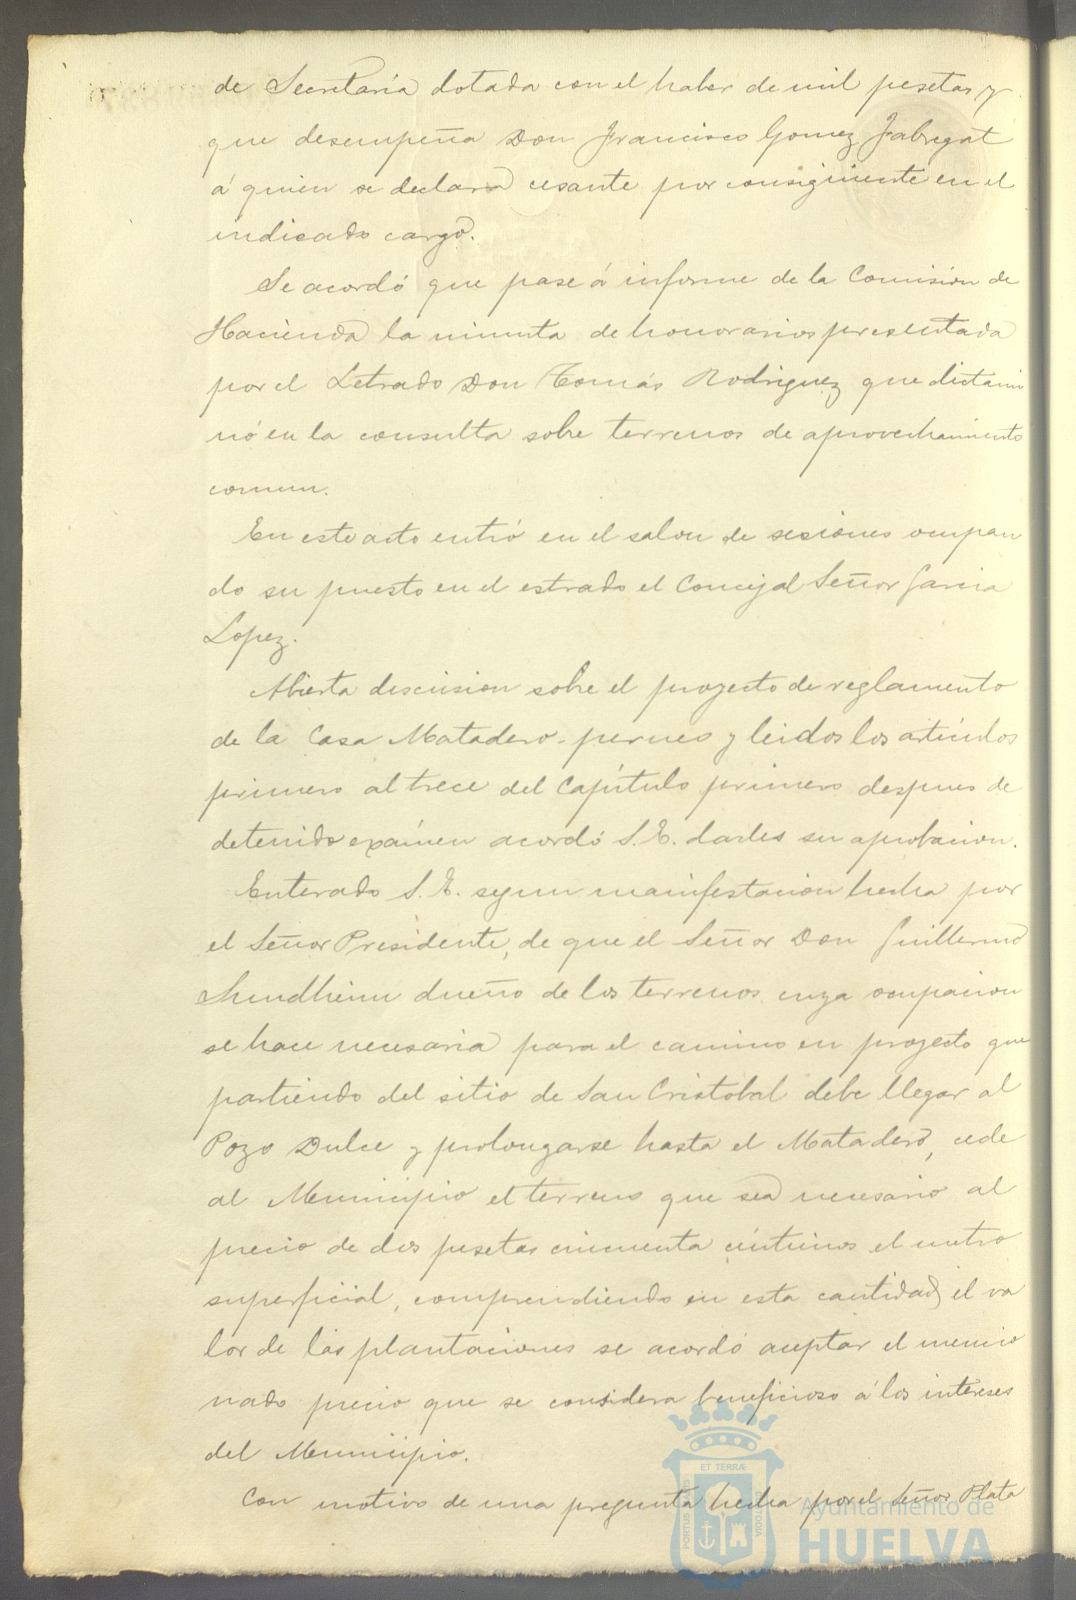 de Secretaría dotada con el haber de mil pesetas y
que desempeña Don Francisco Gomez Fabregat
á quien se declara cesante por consiguiente en el
indicado cargo.
Se acordó que pase á informe de la Comision de
Hacienda la minuta de honorarios presentada
por el Letrado Don Tomás Rodriguez que dictami
nó en la consulta sobre terrenos de aprovechamiento
comun.
En este acto entró en el salon de sesiones ocupan
do su puesto en el estrado el Concejal Señor Garcia
Lopez.
Abierta discusion sobre el proyecto de reglamento
de la Casa Matadero y leidos los artículos
primero al trece del Capítulo primero despues de
detenido exámen acordó S.E. darles su aprobacion.
Enterado S.E. segun manifestacion hecha por
el Señor Presidente, de que el Señor Don Guillermo
Sundheim dueño de los terrenos cuya ocupacion
se hace necesaria para el camino en proyecto que
partiendo del sitio de San Cristobal debe llegar al
Pozo Dulce y prolongarse hasta el Matadero, cede
al Municipio el terreno que sea necesario al
precio de dos pesetas cincuenta céntimos el metro
superficial, comprendiendo en esta cantidad el va
lor de las plantaciones se acordó aceptar el mencio
nado precio que se considera beneficioso á los intereses
del Municipio.
Con motivo de una pregunta hecha por el Señor Plata
ET TERRÆ
PORTUS MARIS
CUSTODIA
Ayuntamiento de
HUELVA